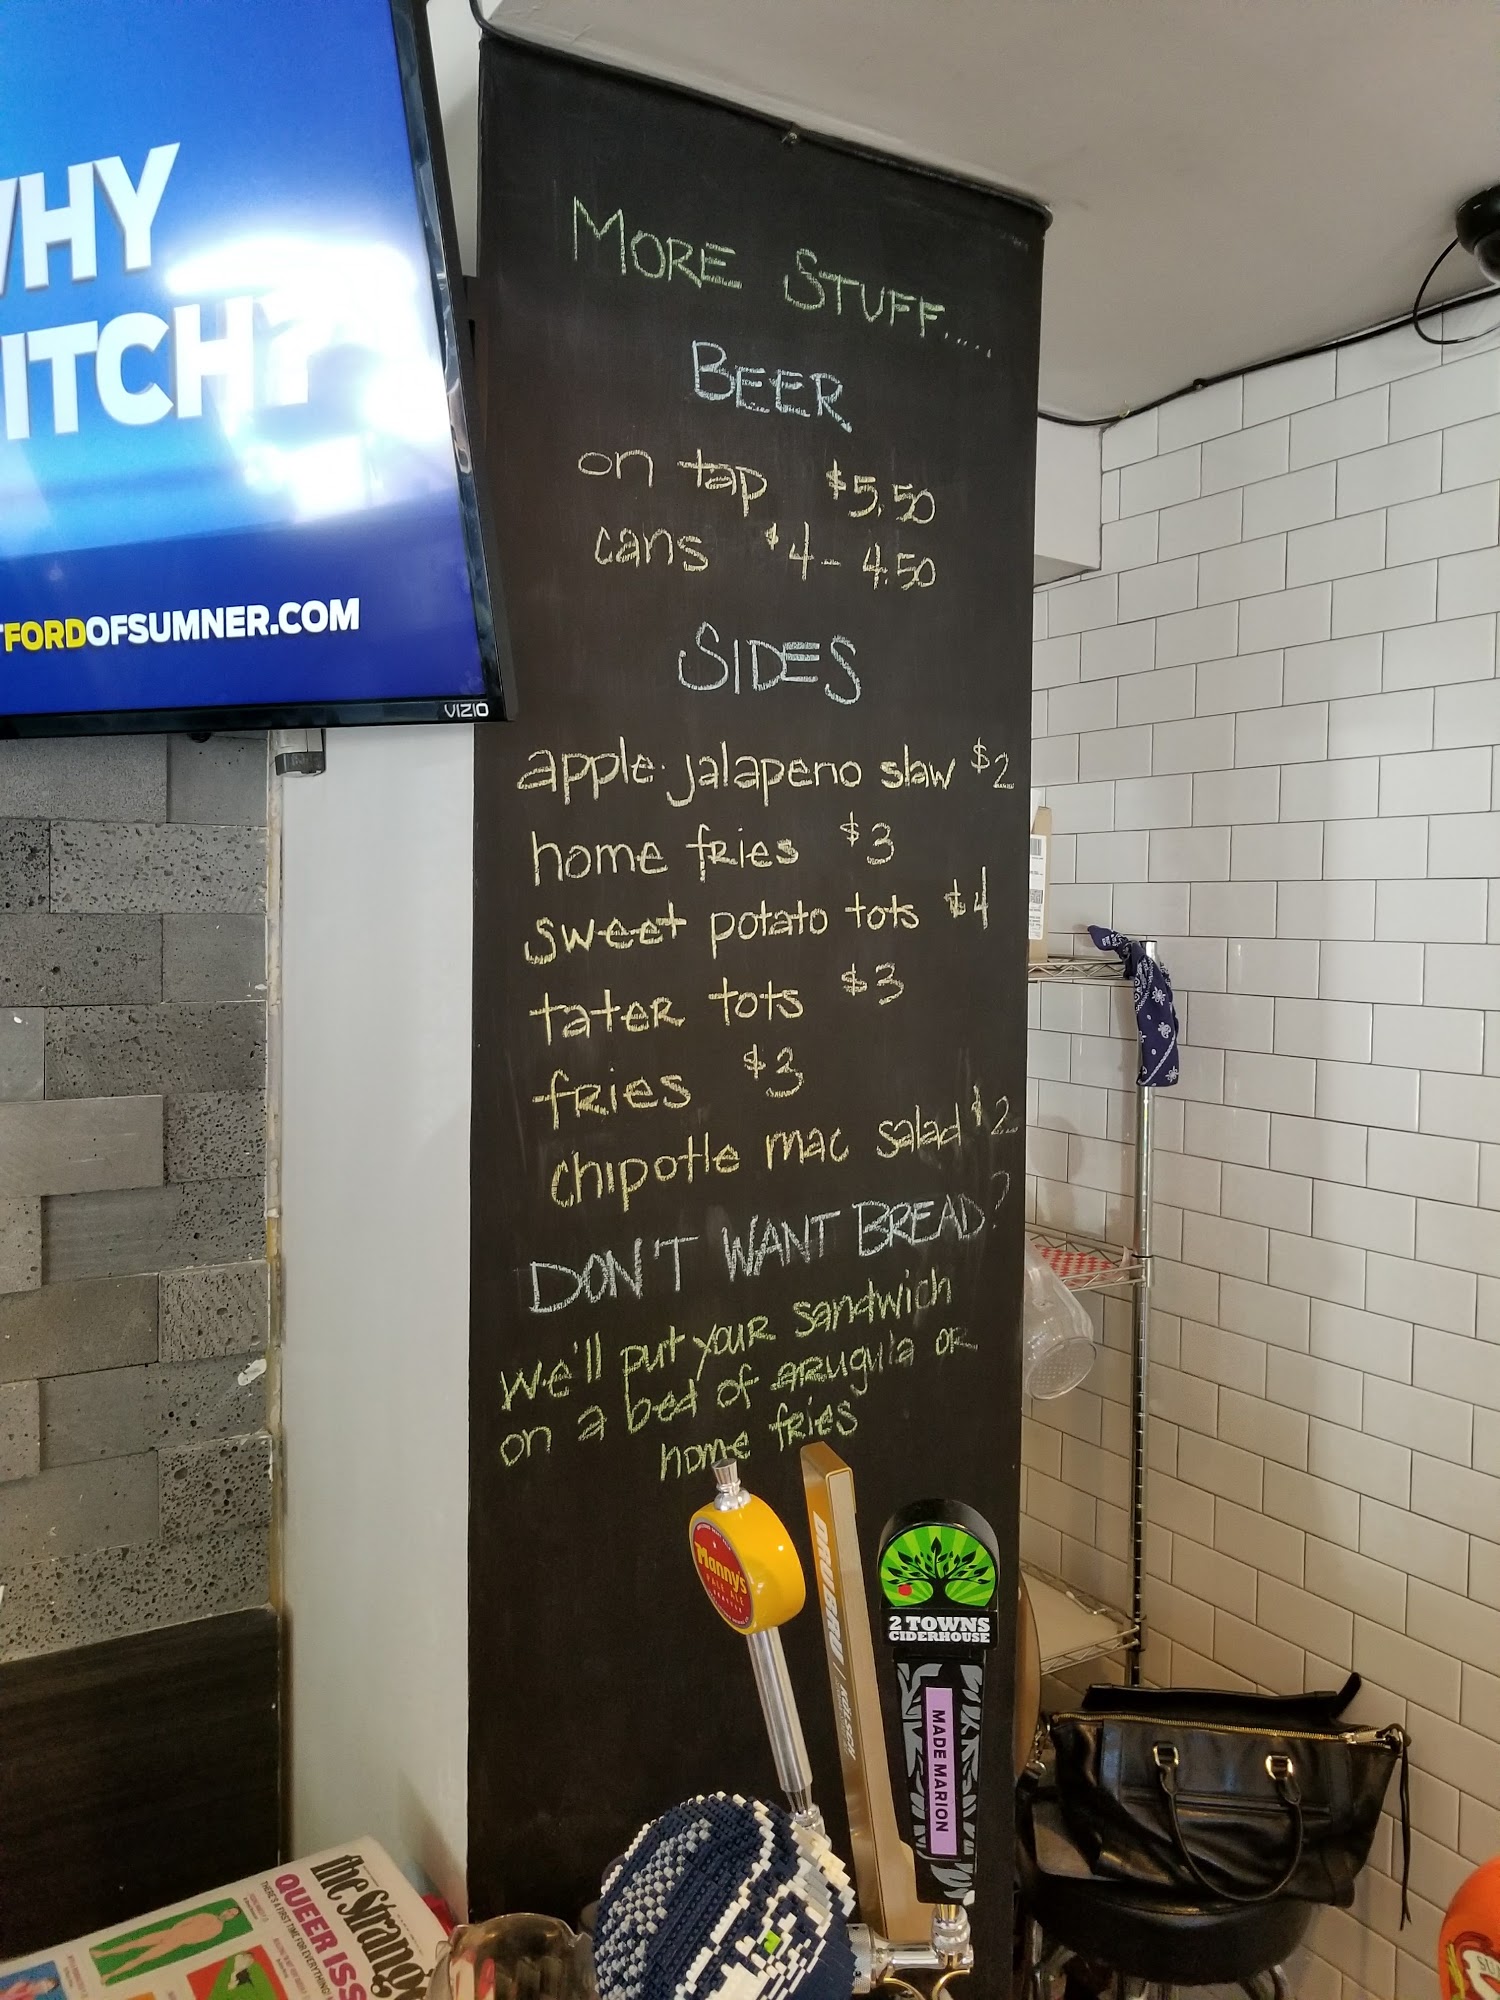 MORE STUFF.....
BEER
on tap $5.50
cans $4 - 4.50
SIDES
apple jalapeno slaw $2
home fries $3
sweet potato tots $4
tater tots $3
fries $3
chipotle mac salad $2
DON'T WANT BREAD?
We'll put your sandwich
on a bed of arugula or
home fries
HY
ITCH?
FORDOFSUMNER.COM
VIZIO
Manny's
PALE ALE
KÖLSCH
2 TOWNS
CIDERHOUSE
MADE MARION
the Strang
QUEER ISS
THERE'S A FIRST TIME FOR EVERYTHING!